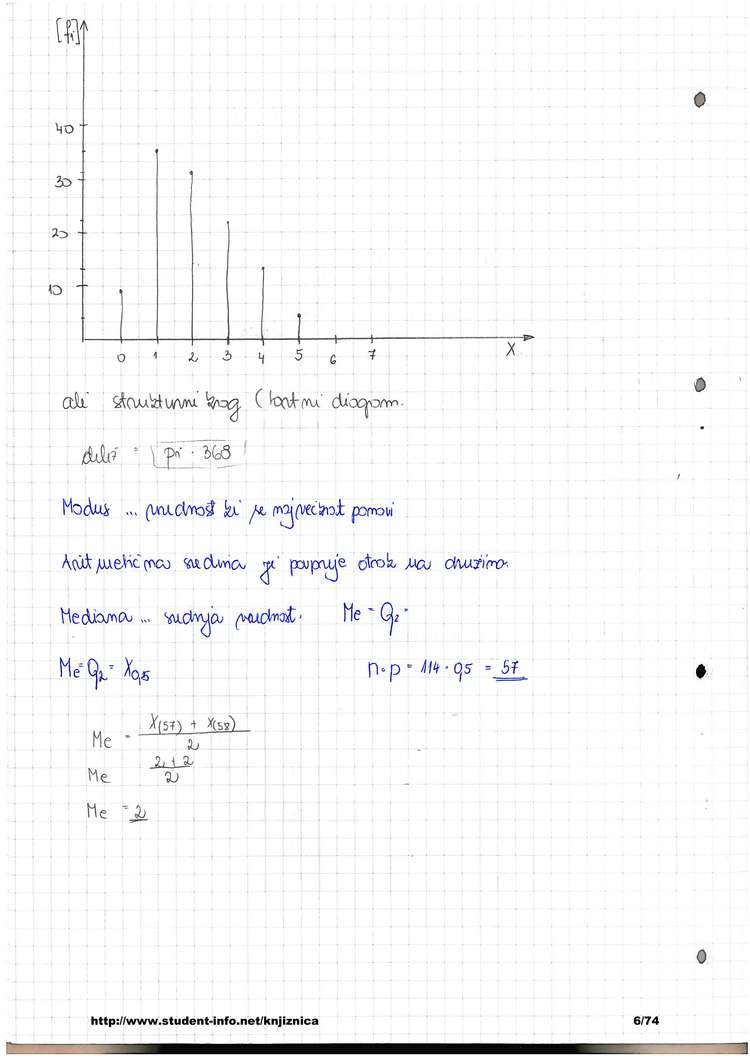 [fi]
40
30
20
10
0 1 2 3 4 5 6 7 X
ali strukturni krog (tortni diagram.
delež = pi · 368
Modus ... vrednost ki se največkrat ponovi
Aritmetična sredina je povpruje otrok na družino.
Mediana ... srednja vrednost. Me = Q2 =
Me = Q2 = X0,5 n·p = 114 · 0,5 = 57
Me = X(57) + X(58)
2
Me 2 + 2
2
Me = 2
http://www.student-info.net/knjiznica 6/74